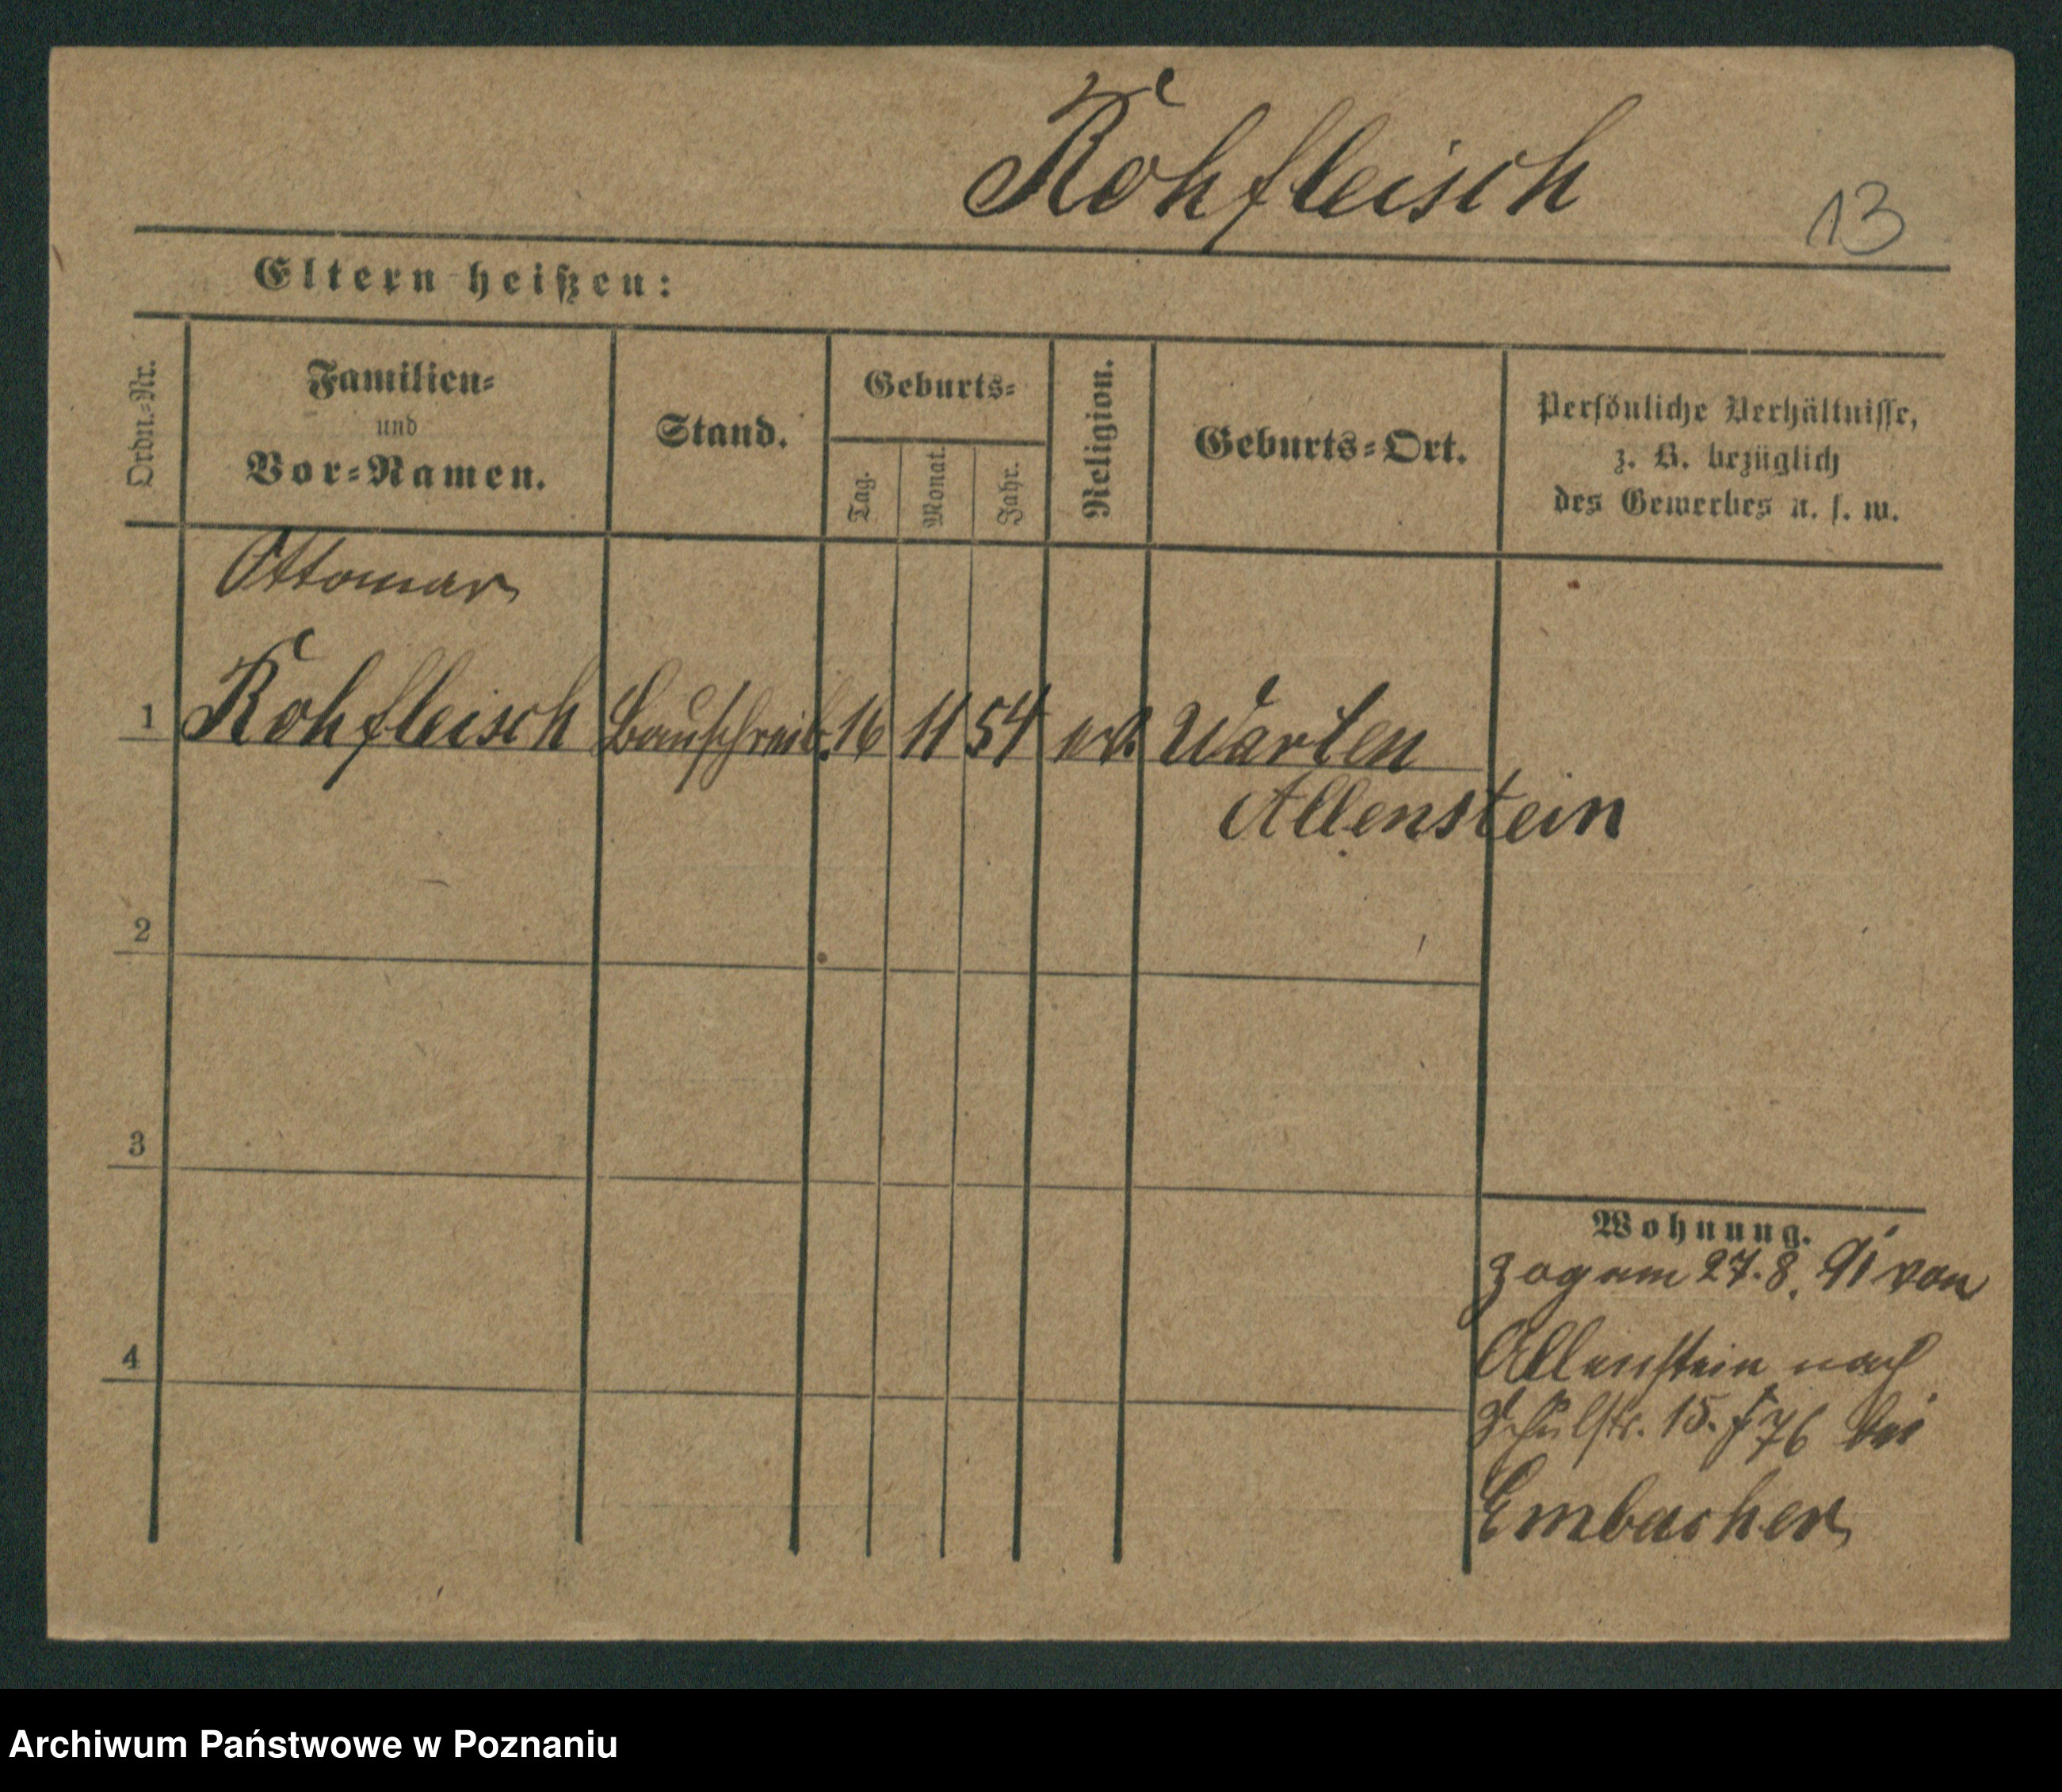 Rohfleisch
13
Eltern heißen:
Ordn.-Nr.
Familien-
und
Vor-Namen.
Stand.
Geburts-
Tag.
Monat.
Jahr.
Religion.
Geburts-Ort.
Persönliche Verhältnisse,
z. B. bezüglich
des Gewerbes u. s. w.
Ottomar
1 Rohfleisch Bauschreib. 16 11 54 Warten
Allenstein
2
3
4
Wohnung.
zog am 27.8.91 von
Allenstein nach
Schulstr. 15. 76 bei
Embacher
Archiwum Państwowe w Poznaniu